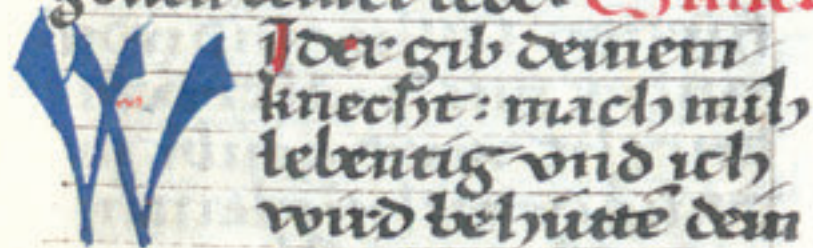 WIder gib deinem
knecht: mach mih
lebentig vnd ich
wird behüttē dein